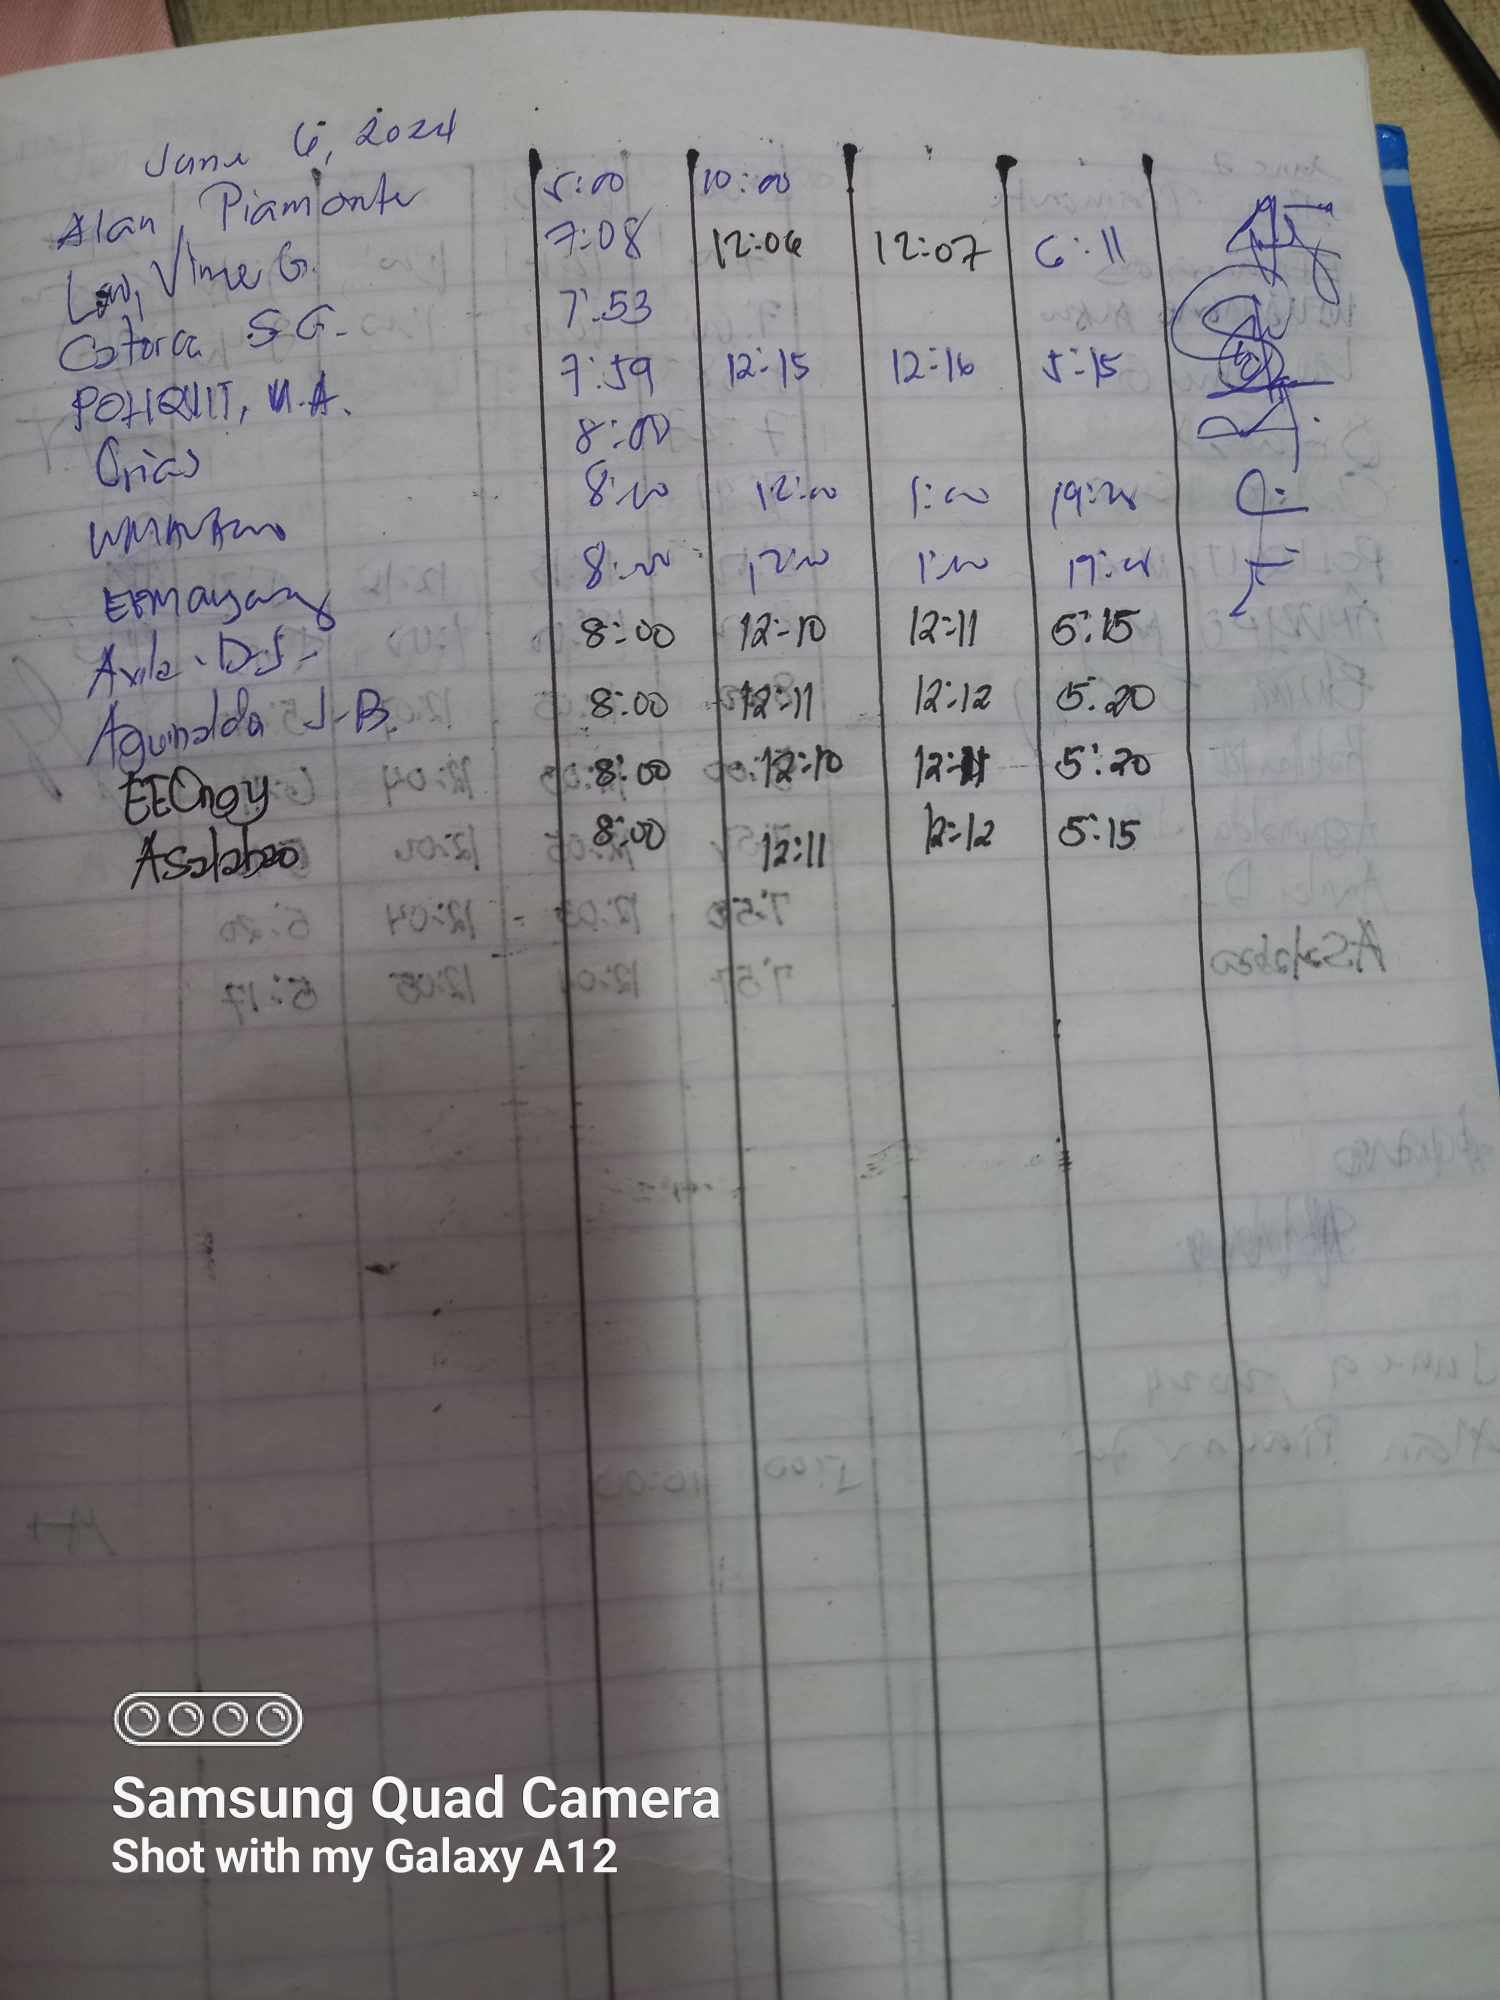 June 6, 2024
Alan, Piamonte 5:00 10:00
Low, Vince G. 7:08 12:06 12:07 6:11
Catorca S G. 7:53
POTIQUIT, M.A. 7:59 12:15 12:16 5:15
Orias 8:00
8:00 12:00 1:00 19:00
EEMayang 8:00 12:00 1:00 19:00
Avila D.J. 8:00 12:10 12:11 5:15
Aguinalda J-B. 8:00 12:11 12:12 5:20
EEOngy 8:00 12:10 12:11 5:20
ASalabao 8:00 12:11 12:12 5:15
Samsung Quad Camera
Shot with my Galaxy A12